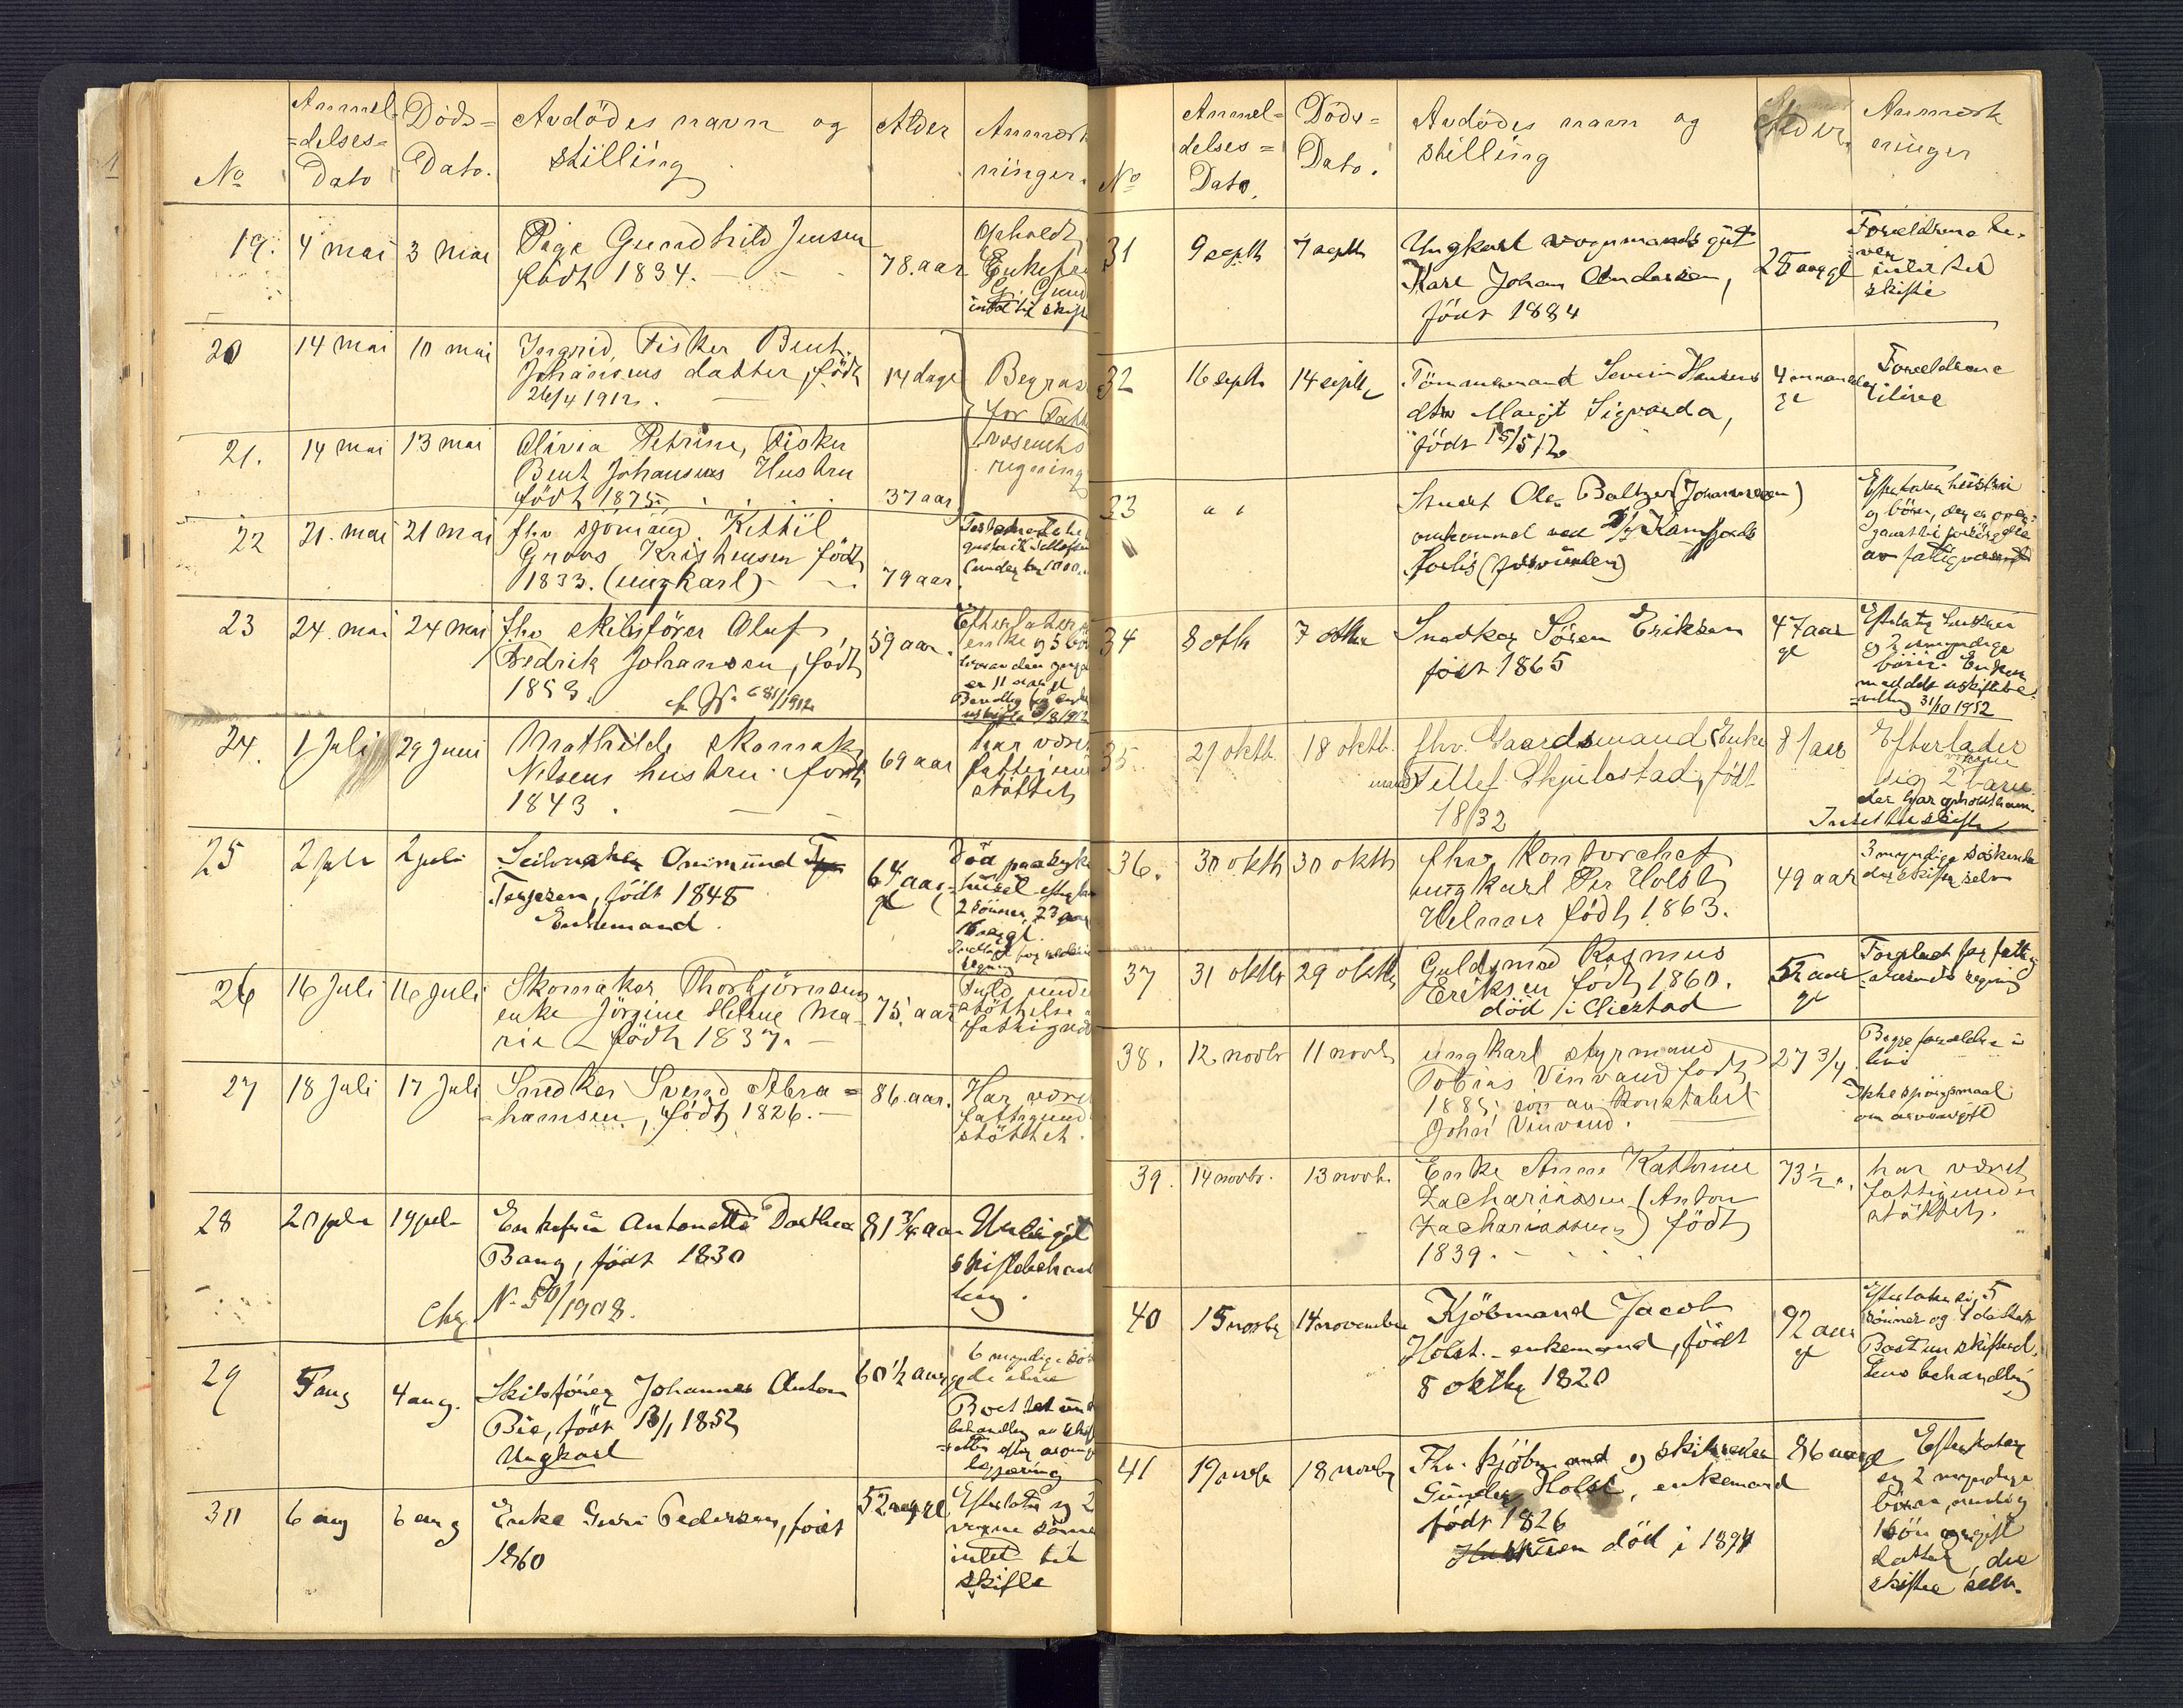 Anmel-
=delses=
Dato
Døds=
Dato.
Avdödes navn og
stilling
Alder
Anmærk
ninger.
No
19. 4 mai 3 mai Pige Gundhild Jensen
födt 1834. 78. aar
Opholdt
Enkefru
intet til skifte
20 14 mai 10 mai Ingrid, Fisker Bent
Johansens datter, födt 14 dage
26/4 1912.
Begrav
for Fatt
væsenets
regning
21. 14 mai 13 mai Olivia Petrine, Fisker
Bent Johansens Hustru
födt 1875. 37 aar
22 21. mai 21 mai fhv sjömand Kittil
Gnovs Kristensen födt
1833. (ungkarl) 79 aar.
23 24. mai 24 mai fhv skibsförer Oluf
Fredrik Johansen, födt 59 aar.
1853.
No 681/1912
Efterlater
enke og 5 bör
er 11 aar gl
24. 1 Juli 29 Juni Mathilde skomak
Nilsens hustru födt 69 aar
1843.
har været
fattigun
støttet
25 2 juli 2 juli Seilmaker Onimund
Terjesen, födt 1848 64 aar gl
Enkemand.
Död paa syke
huset
2 sönner, 23 aar
26 16 Juli 16 Juli Skomaker Thorbjörnsens
enke Jörgine Helene Ma-
rie födt 1837. 75. aar
Fuld unde
støttelse
fattigvæ
27 18 Juli 17 Juli Snedker Svend Abra=
=hamsen, födt 1826. 86. aar.
Har være
fattigund
støttet.
28 20 juli 19 juli Enkefru Antonette Dorthea
Bang, födt 1830 81 3/4 aar
No 50/1908.
Undergit
skiftebehand
ling.
29 5 aug 4 aug. Skibsförer Johannes Anton
Bie, födt 13/1 1852 60 1/2 aar gl
Ungkarl
6 myndige sös
de ilive
Boet tat und
behandling av skift
30 6 aug 6 aug Enke Guri Pedersen, födt
1860 52 aar gl
Efterlater sig 2
voxne sönne
intet til
skifte
No
Anmel=
delses=
Dato.
Döds=
Dato.
Avdödes navn og
stilling
Alder.
Anmærk
ninger
31 9 septb 7 septb Ungkarl vognmandsgut
Karl Johan Andersen, 28 aar gl
födt 1884
Forældrene le-
ver
intet til
skifte
32 16 septb 14 septb Tömmermand Severin Hansens
dtr Margit Sigvarda, 4 maaneder
gl
födt 15/5 12
Forældrene
ilive
33 " " Stuert Ole Baltzer (Johannesen)
omkommet med
forlis (forsvunden)
Efterlater hustru
og börn
av fattigvæsenet
34 8 oktb 7 oktbr Snedker Sören Eriksen 47 aar
gl
födt 1865
Efterlater hustru
og 2 umyndige
börn. Enken
meddelt uskiftebe-
=villing 31/10 1912
35 21 oktb. 18 oktb. fhv. Gaardsmand Enke
mand Tellef Skjulestad, födt 81 aar
1832
Efterlader
sig 2 barn
Intet til skifte
36. 30 oktb 30 oktb fhv. Kontorchef
ungkarl Per Holst
Helmer födt 1863. 49 aar
3 myndige söskende
der skifter selv
37 31 oktbr 29 oktb Guldsmed Rasmus
Eriksen födt 1860. 52 aar
gl
död i Grimstad
Forpleiet for fattig
=væsenets regning
38. 12 novbr 11 novb ungkarl styrmand
Tobias Vinvand födt 27 3/4
1885, sön av Konstabel
Johs Vinvand.
Begge forældre i
live
Ikke spörgsmaal
om arveavgift
39. 14 novbr. 13 novb. Enke Anne Kathrine
Zachariassen (Anton
Zachariassens) födt 73 1/2 ".
1839.
har været
fattigunder
støttet.
40 15 novbr 14 november Kjöbmand Jacob
Holst. - enkemand, födt 92 aar
gl
8 oktbr 1820
Efterlater sig 5
sönner og 4 döttre
Boet un skifteret
tens behandling
41 19 novbr 18 novbr Fhv. Kjöbmand og skibsreder
Gunder Holst, enkemand 86 aar gl
födt 1826
Hustruen död i 1894
Efterlater
sig 2 myndige
börn, nemlig
1 sön og gift
datter, der
skifter selv.